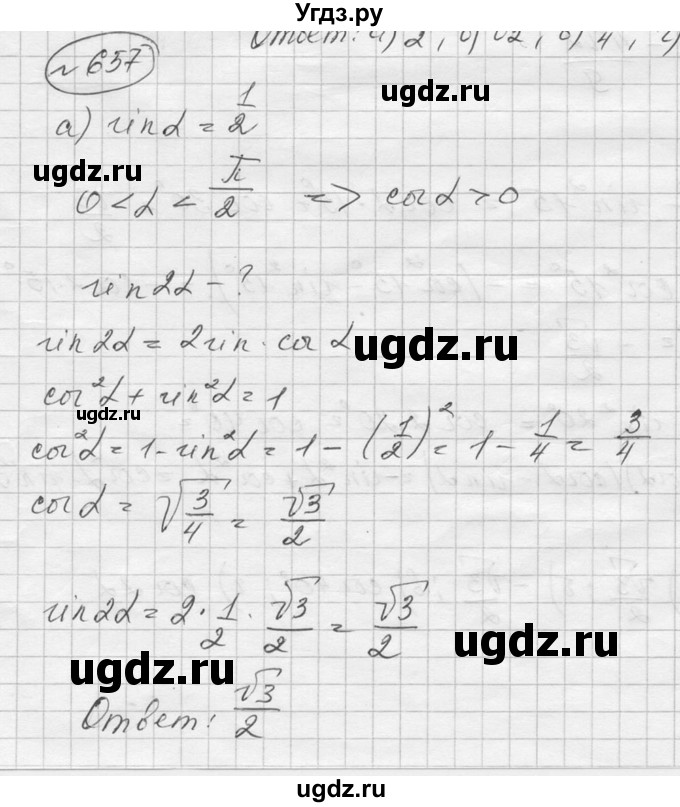 Угдз.ру
Ответ: а) 2, б) √2, в) 4,
№ 657
ugdz.ru
а) sin α = 1/2
ugdz.ru
0 < α < π/2 => cos α > 0
sin 2α - ?
sin 2α = 2 sin · cos α
ugdz.ru
cos²α + sin²α = 1
ugdz.ru
cos²α = 1 - sin²α = 1 - (1/2)² = 1 - 1/4 = 3/4
cos α = √(3/4) = √3/2
sin 2α = 2 · 1/2 · √3/2 = √3/2
ugdz.ru
ugdz.ru
Ответ: √3/2
ugdz.ru